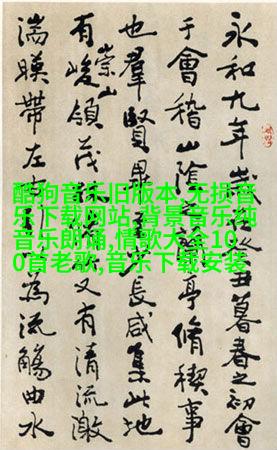 永和九年歲丑暮春之初會
于會稽山陰亭脩稧事
也羣賢畢長咸集此地
有崇山峻領茂又有清流激
湍暎帶左為流觴曲水
酷狗音乐旧版本,无损音
乐下载网站,背景音乐纯
音乐朗诵,情歌大全10
0首老歌,音乐下载安装